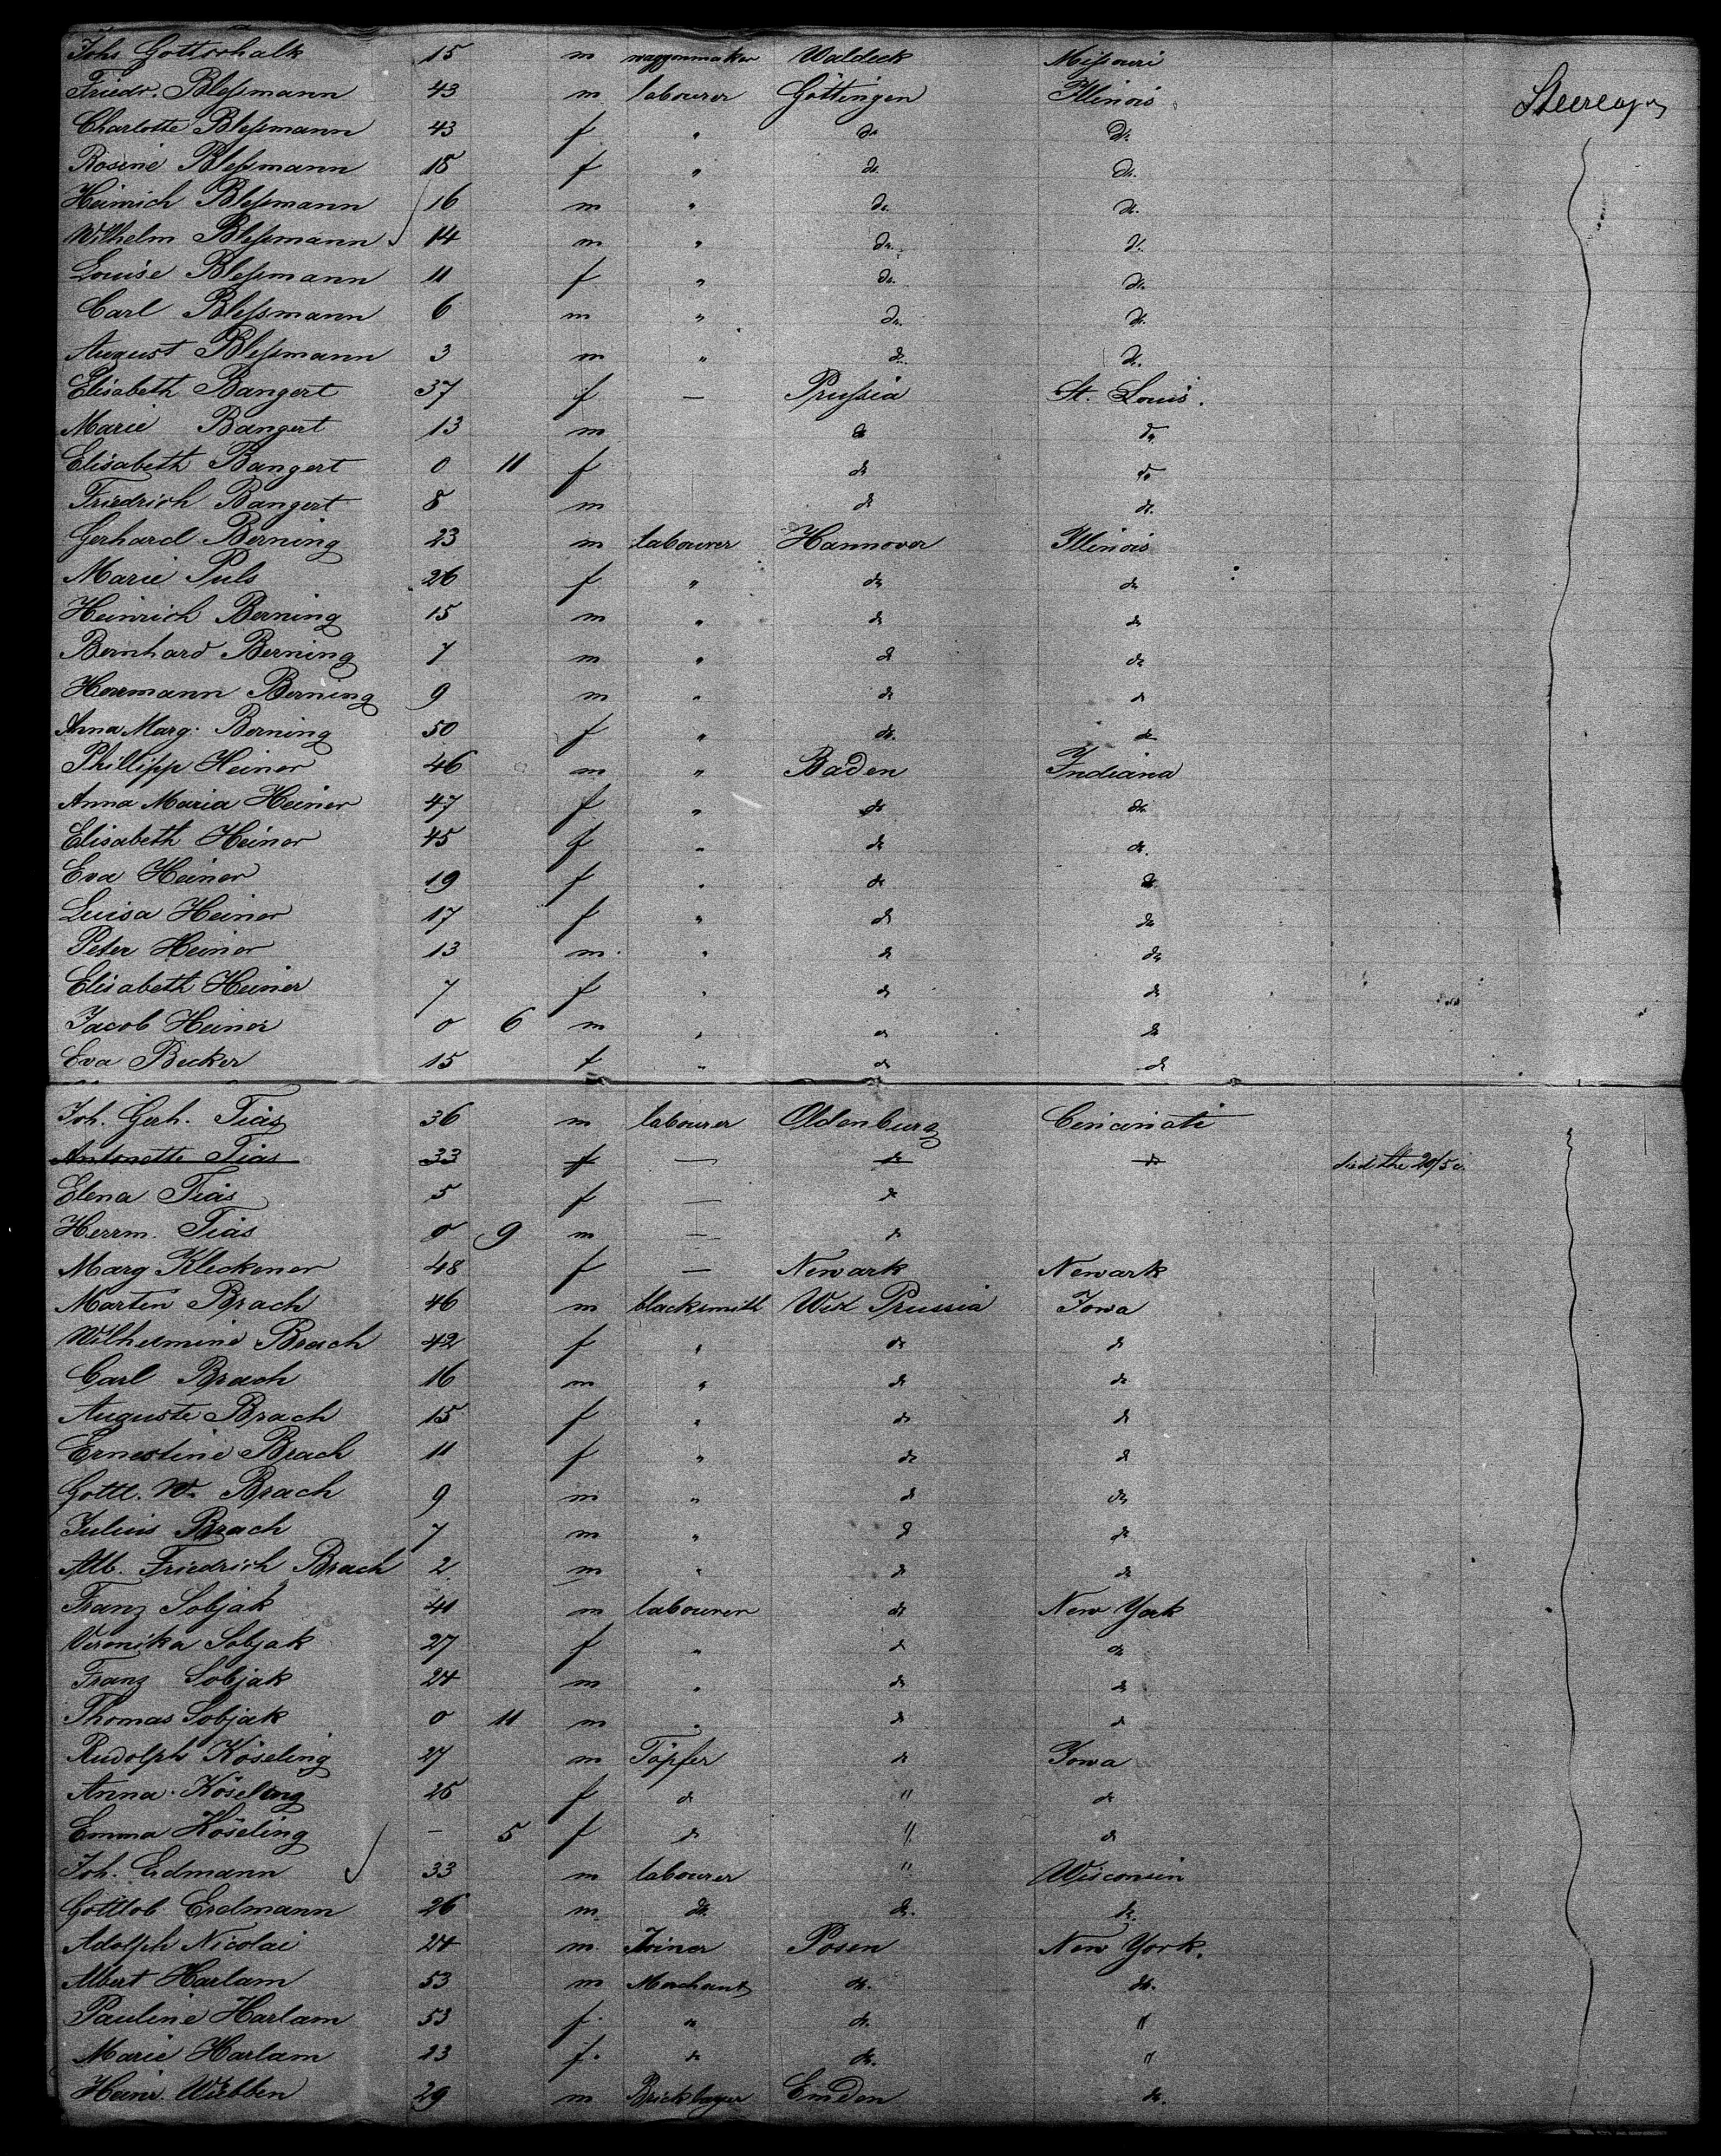 Johs Gottschalk 15 m waggonmaker Waldeck Mißouri
Friedr. Bleßmann 43 m labourer Göttingen Illinois Steerage
Charlotte Bleßmann 43 f " do. do.
Rosine Bleßmann 18 f " do. do.
Heinrich Bleßmann 16 m " do. do.
Wilhelm Bleßmann 14 m " do. do.
Louise Bleßmann 11 f " do. do.
Carl Bleßmann 6 m " do. do.
August Bleßmann 3 m " do. do.
Elisabeth Bangert 37 f — Prußia St. Louis.
Marie Bangert 13 m do do
Elisabeth Bangert 0 11 f do do
Friedrich Bangert 8 m do do.
Gerhard Berning 23 m labourer Hannover Illinois
Marie Puls 26 f " do do
Heinrich Berning 15 m " do do
Bernhard Berning 7 m " do do
Herrmann Berning 9 m " do do
Anna Marg. Berning 50 f " do. do
Phillipp Heiner 46 m " Baden Indiana
Anna Maria Heiner 47 f " do do
Elisabeth Heiner 45 f " do do.
Eva Heiner 19 f " do do
Luisa Heiner 17 f " do do
Peter Heiner 13 m " do do
Elisabeth Heiner 7 f " do do
Jacob Heiner 0 6 m " do do
Eva Becker 15 f " do do
Joh. Gerh. Tias 36 m labourer Oldenburg Cincinati
Antonette Tias 33 f — do do died the 20/5
Elena Tias 5 f — do
Herrm. Tias 0 9 m — do
Marg Kleckener 48 f — Newark Newark
Martin Brach 46 m blacksmith West Prussia Iowa
Wilhelmine Brach 42 f " do do
Carl Brach 16 m " do do
Auguste Brach 15 f " do do
Ernestine Brach 11 f " do do
Gottl. W. Brach 9 m " do do
Julius Brach 7 m " do do
Alb. Friedrich Brach 2 m " do do
Franz Sobjak 41 m labourer do New York
Veronika Sobjak 27 f " do do
Franz Sobjak 24 m " do do
Thomas Sobjak 0 11 m " do do
Rudolph Köseling 27 m Töpfer do Iowa
Anna Köseling 25 f do " do
Emma Köseling — 5 f do " do
Joh. Erdmann 33 m labourer " Wisconsin
Gottlob Erdmann 26 m do. do. do.
Adolph Nicolai 24 m Joiner Posen New York.
Albert Harlam 53 m Merchant do. do.
Pauline Harlam 53 f. " do. "
Marie Harlam 23 f. " do. "
Heinr. Wübben 29 m Bricklayer Emden do.